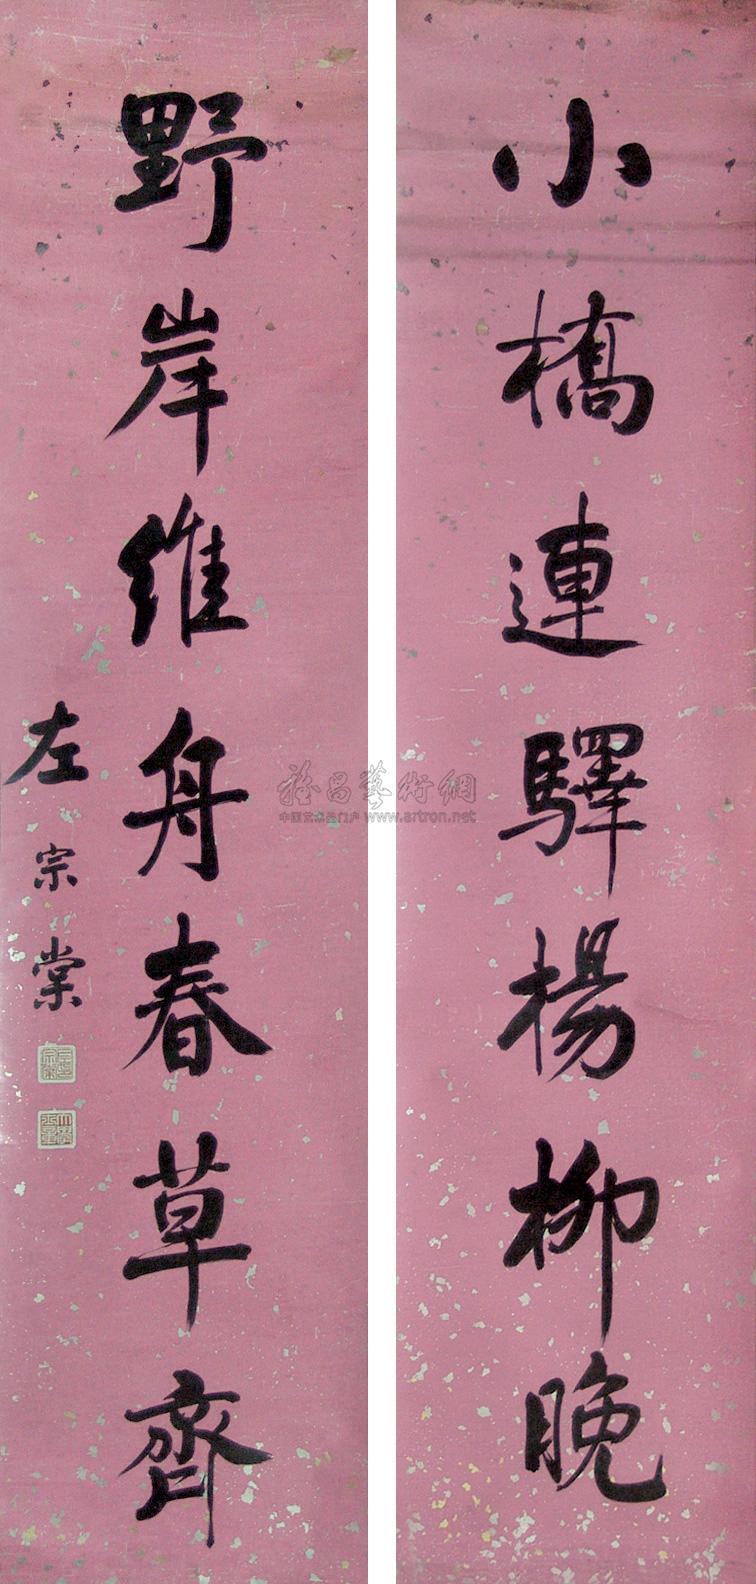 小橋連驛楊柳晚
野岸維舟春草齊
左宗棠
雅昌藝術網
中国艺术品门户 www.artron.net